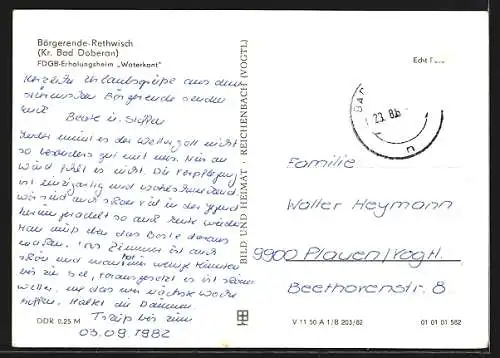 Börgerende-Rethwisch
(Kr. Bad Doberan)
FDGB-Erholungsheim „Waterkant"
Herzliche Urlaubsgrüße aus dem
stürmischen Börgerende senden
Euch
Beate u. Steffen
Leider meint es der Wettergott nicht
so besonders gut mit uns. Nur an
Wind fehlt es nicht. Die Verpflegung
ist einzigartig und
wir sind auch schon viel in der Gegend
herum geradelt so auch heute wieder.
Man muß eben das Beste daraus
machen. Das Zimmer ist auch
schön und man hat nur wenige Minuten
bis zur See, vorausgesetzt es ist schönes
Wetter, was das wir nächste Woche
hoffen. Haltet die Daumen
Tschüß bis zum
03.09.1982
DDR 0,25 M
BILD UND HEIMAT · REICHENBACH (VOGTL)
Echt
BAD
23. 8.
n
Familie
Walter Heymann
9900 Plauen/Vogtl.
Beethovenstr. 8
V 11 50 A 1/B 203/82
01 01 01 582